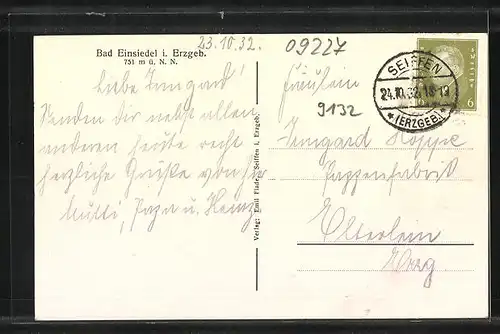 23.10.32.
09227
Bad Einsiedel i. Erzgeb.
751 m ü. N. N.
Liebe Irmgard!
Senden Dir nebst allen
anderen heute recht
herzliche Grüße von hier
Mutti, Papa u. Heinz
Verlag: Emil Flade, Seiffen i. Erzgeb.
SEIFFEN
24.10.32. 18-19
*(ERZGEB.)*
6
Fräulein
9132
Irmgard Hoppe
Pappenfabrik
Elterlein
Erzg